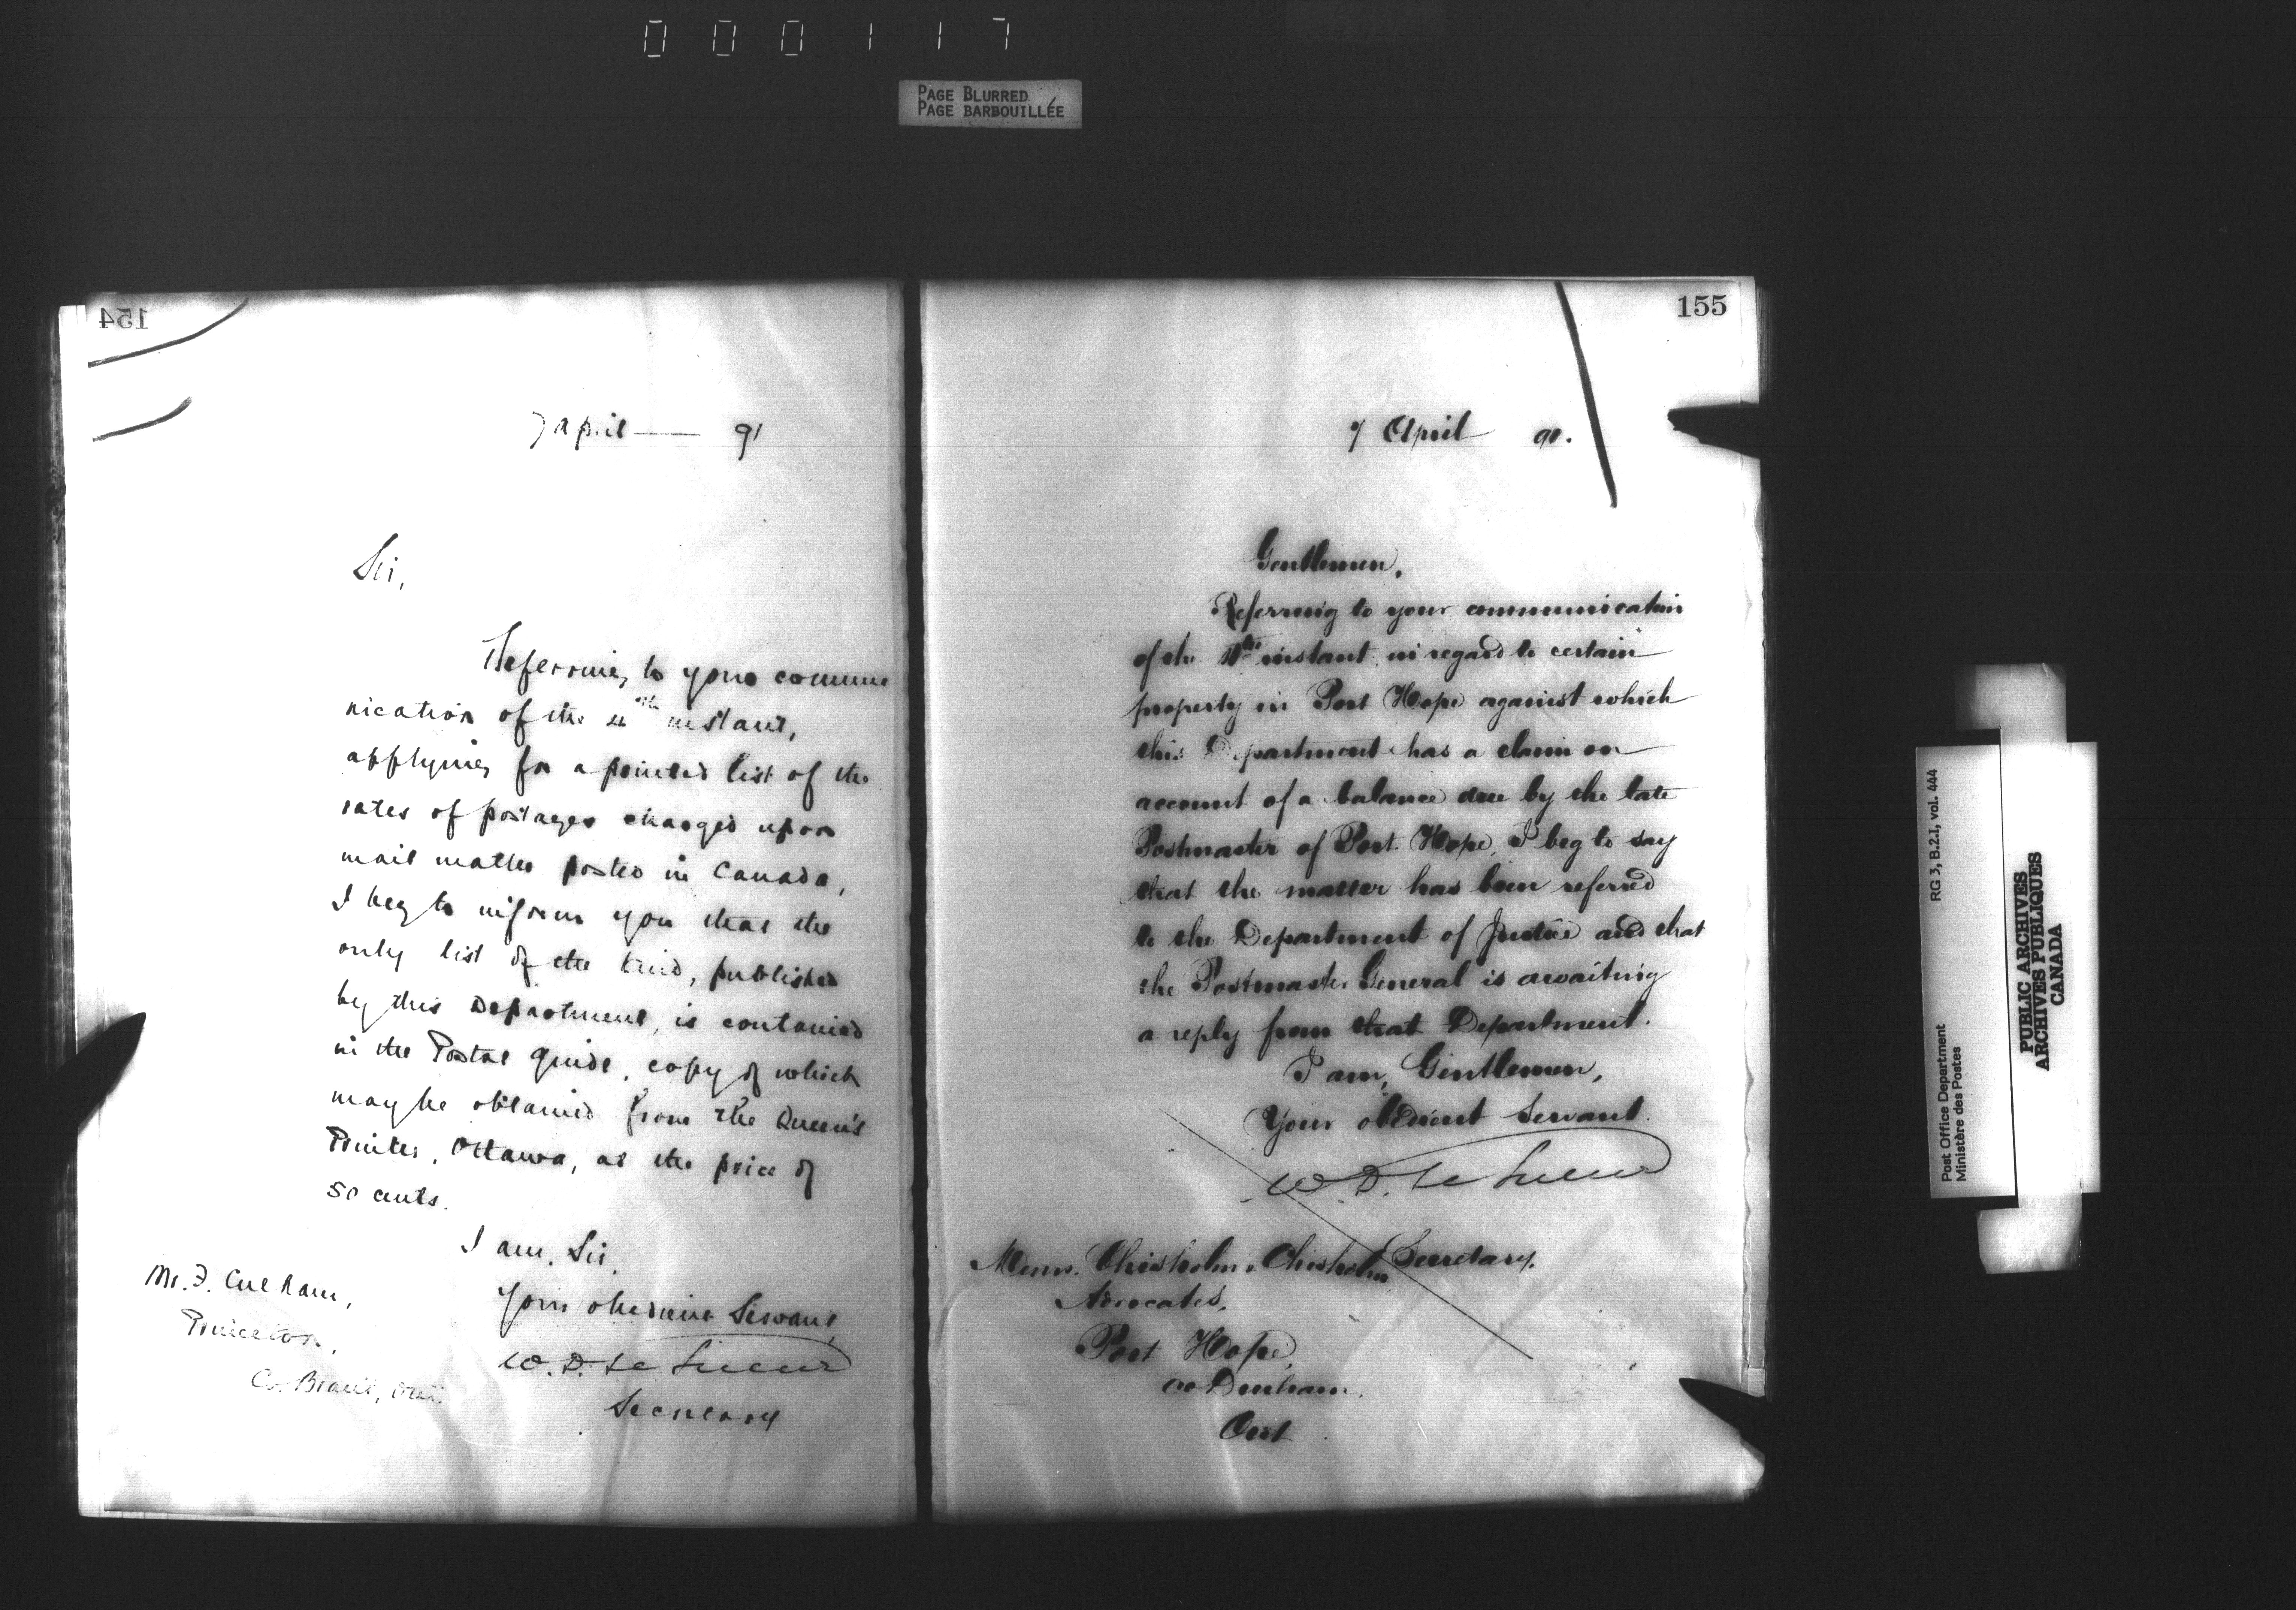 000117
PAGE BLURRED
PAGE BARBOUILLÉE
154
7 April — 91
Sir,
Referring to your commu
nication of the 4th instant,
applying for a printed list of the
rates of postages charged upon
mail matter posted in Canada,
I beg to inform you that the
only list of the kind, published
by this Department, is contained
in the Postal Guide, copy of which
may be obtained from the Queen's
Printer, Ottawa, at the price of
50 cents.
I am, Sir,
Your obedient Servant,
W. D. Le Sueur
Secretary
Mr. F. Culham,
Princeton,
Co. Brant, Ont.
155
7 April 91.
Gentlemen,
Referring to your communication
of the instant in regard to certain
property in Port Hope against which
this Department has a claim on
account of a balance due by the late
Postmaster of Port Hope, I beg to say
that the matter has been referred
to the Department of Justice and that
the Postmaster General is awaiting
a reply from that Department.
I am, Gentlemen,
Your obedient Servant.
W. D. Le Sueur
Secretary.
Messrs. Chisholm & Chisholm
Advocates,
Port Hope,
Co Durham.
Ont
Post Office Department RG 3, B.2.I, vol. 444
Ministère des Postes
PUBLIC ARCHIVES
ARCHIVES PUBLIQUES
CANADA